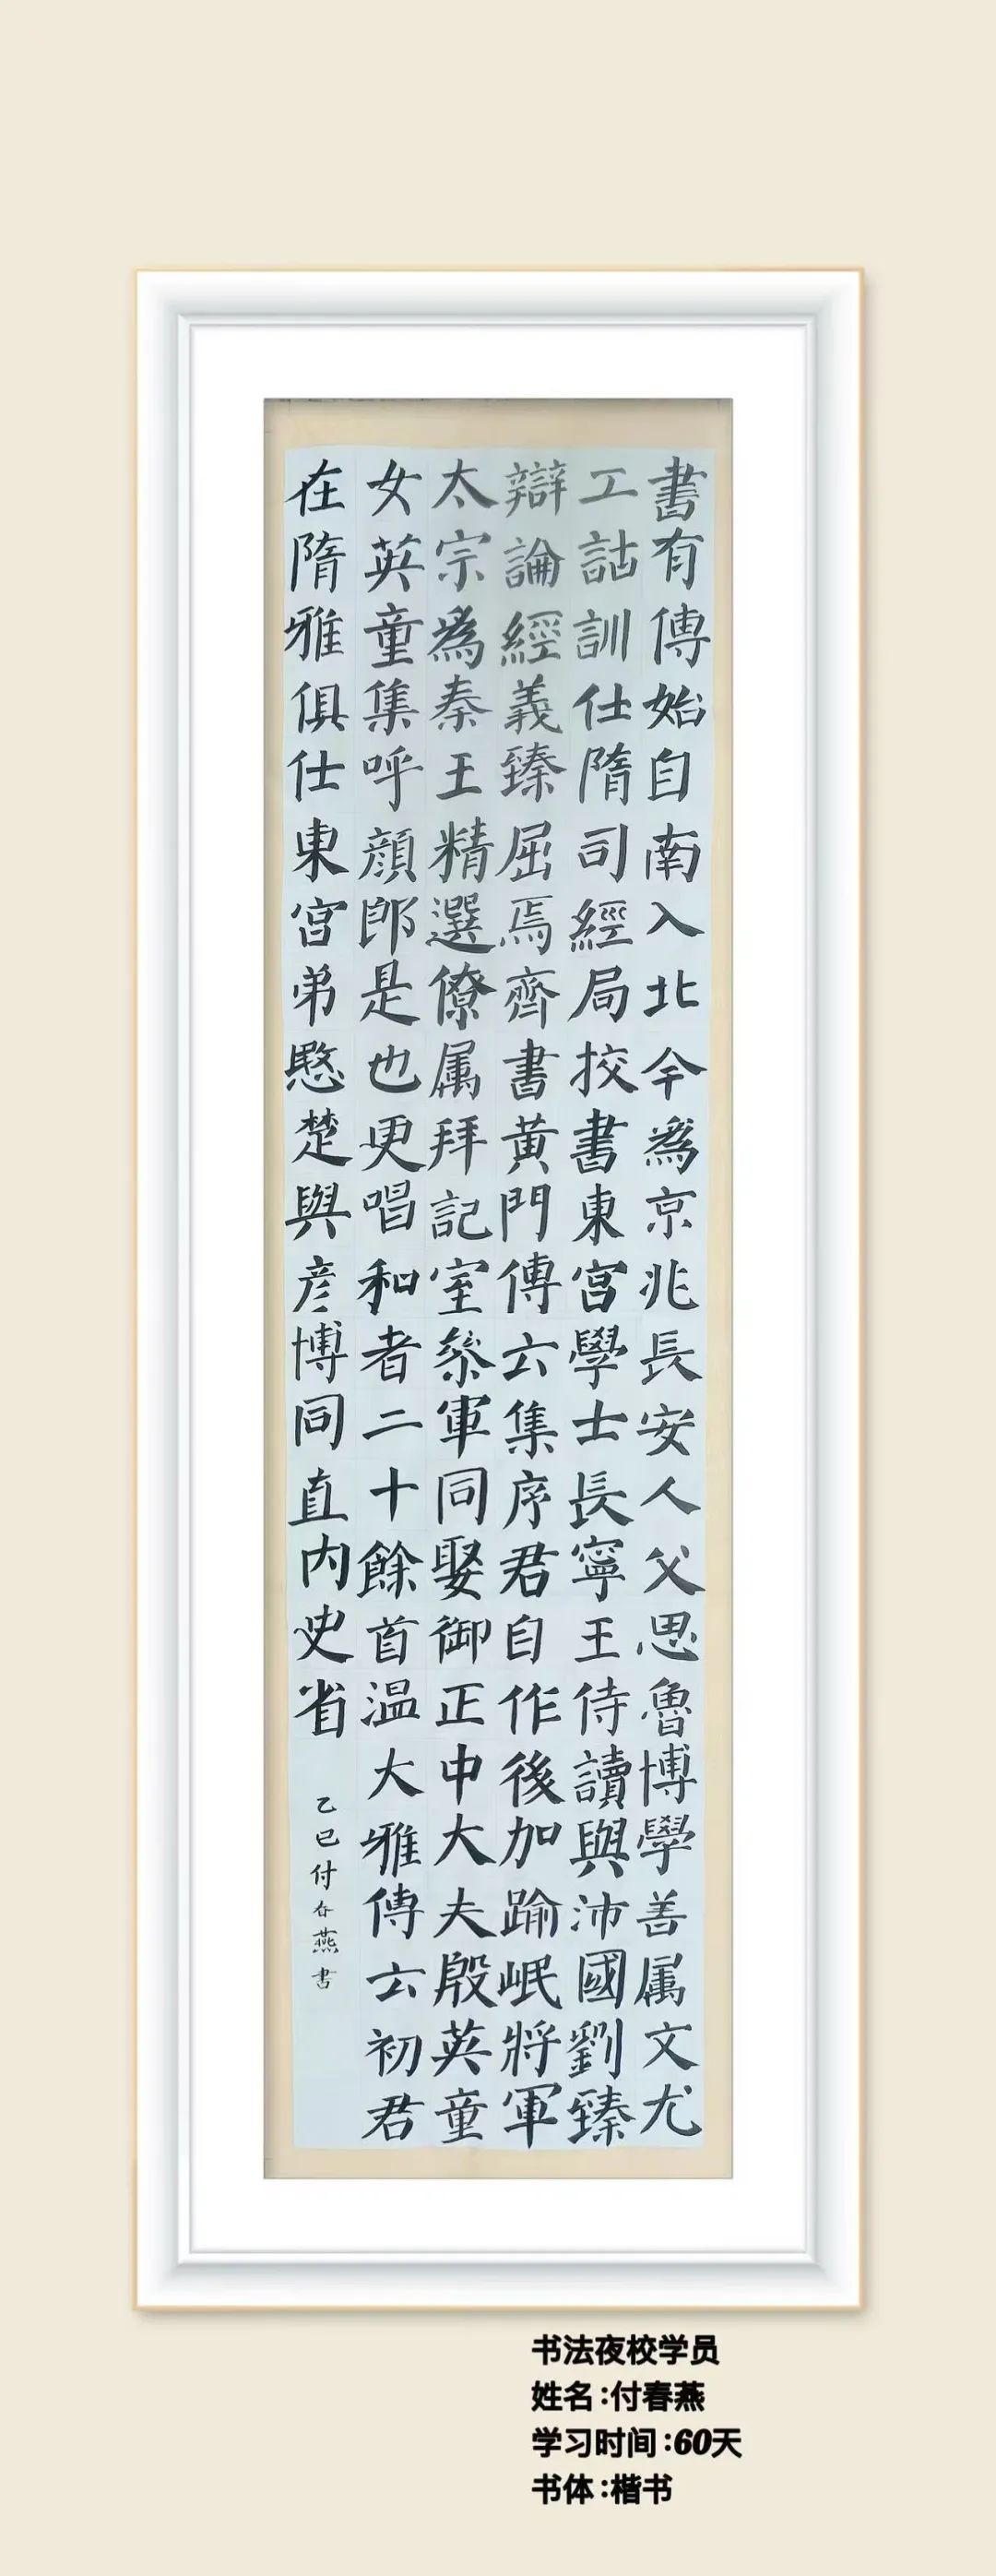 書有傳始自南入北今為京兆長安人父思魯博學善属文尤
工詁訓仕隋司經局挍書東宮學士長寧王侍讀與沛國劉臻
辯論經義臻屈焉齊書黃門傳云集序君自作後加踰岷將軍
太宗為秦王精選僚属拜記室叅軍同娶御正中大夫殷英童
女英童集呼顔郎是也更唱和者二十餘首温大雅傳云初君
在隋雅俱仕東宮弟愍楚與彦博同直内史省
乙巳付春燕書
书法夜校学员
姓名:付春燕
学习时间:60天
书体:楷书